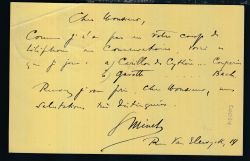 Cher Monsieur,
Comme j'ai pas eu votre coup de
téléphone au Conservatoire, voici
que je joue: a) Carillon de Cythère... Couperin
b) Gavotte .... Bach.
Recevez, je vous prie, cher Monsieur, mes
salutations très distinguées.
Minet
Rue Van Elewyck, 14